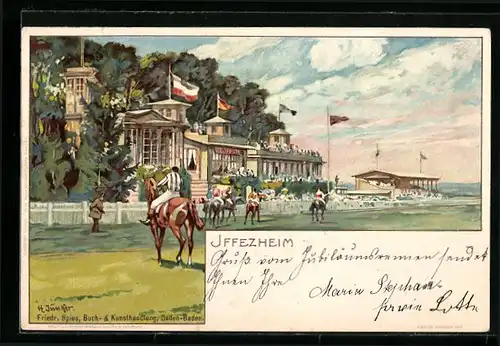 JFFEZHEIM
Gruß vom Jubiläumsrennen sendet
Ihnen Ihre
Marie Stephan
sowie Lotte
H. Junker.
Friedr. Spies, Buch- & Kunsthandlung, Baden-Baden.